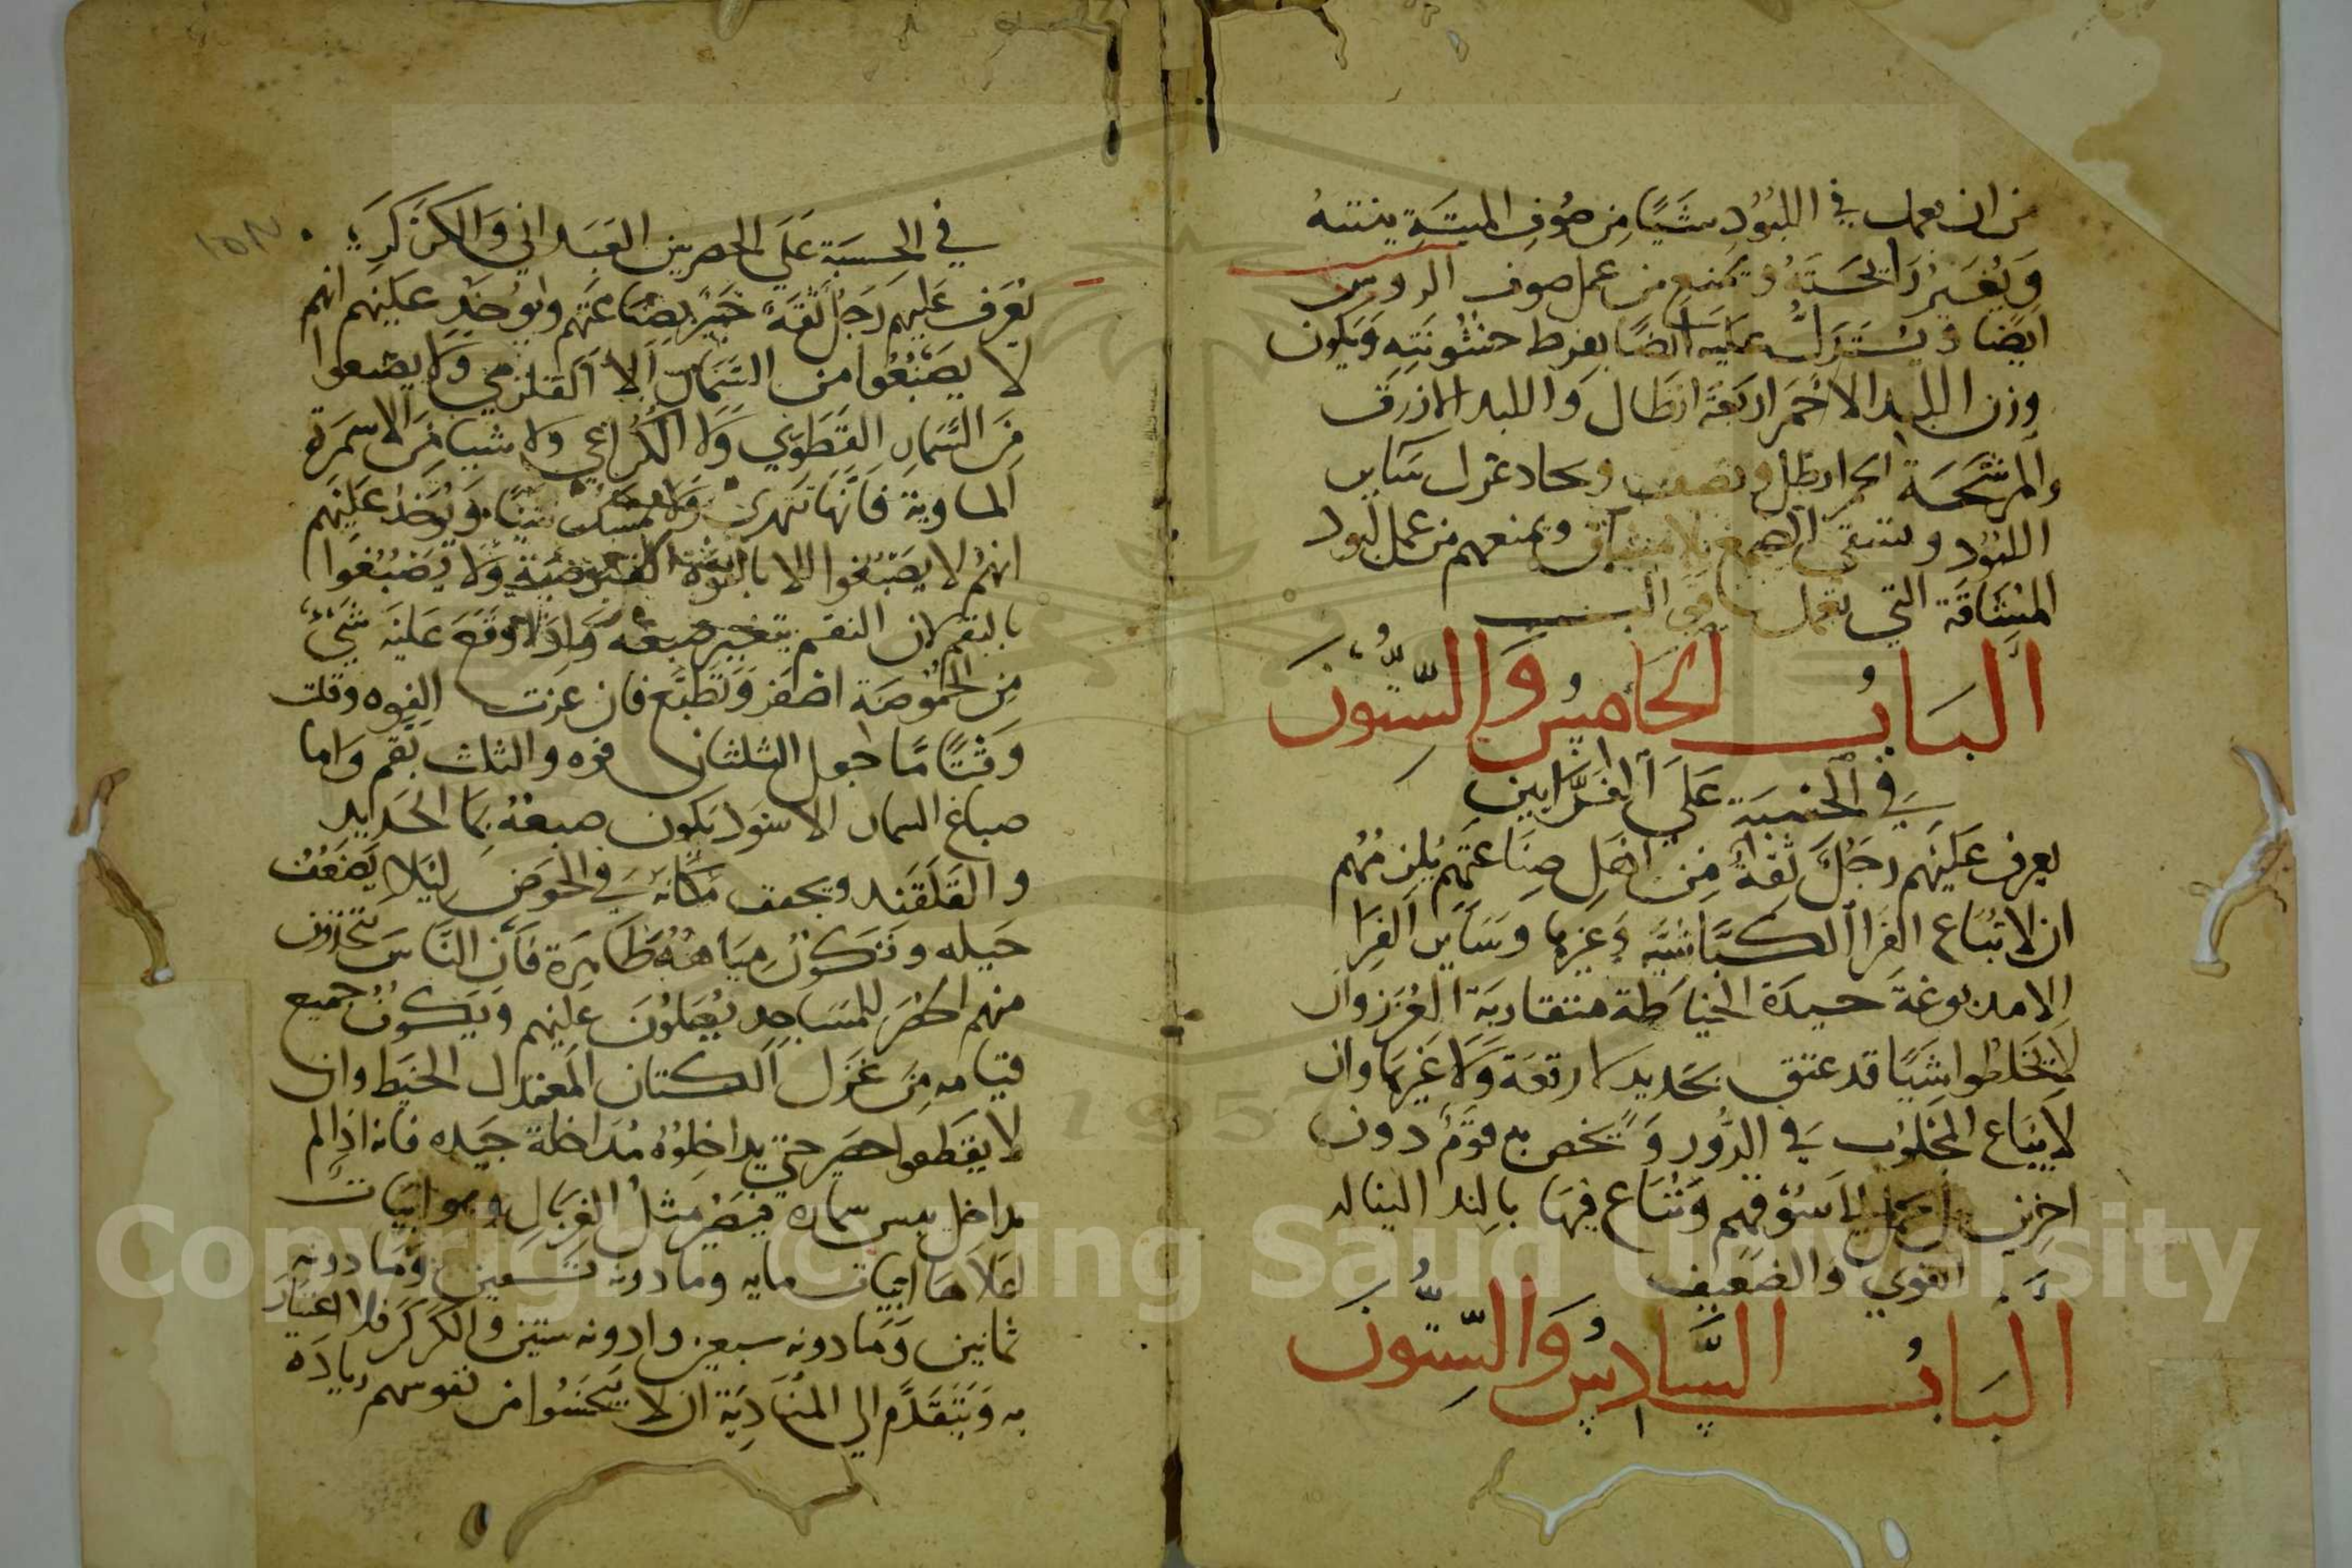 من ان يعمل في اللبود شيًا من صوف الميتة ينتنه
ويغير رائحته ويمنع من عمل صوف الروس
ايضا ويستدل عليه ايضًا بفرط خشونته ويكون
وزن اللبد الاحمر اربعة ارطال واللبد الازرق
والمرشحة احد ارطل ونصف ويجاد غزل ساير
اللبود وينقى الصمغ وبمنعهم من عمل لبود
المشاقة التي تعمل
الباب الخامس والستون
في الحسبة على الفرايين
يعرف عليهم رجل ثقة من اهل صناعتهم يلزمهم
ان لا تباع الفرا الكباشية وغيرها وساير الفرا
الا مدبوغة جيدة الخياطة متقاربة الغرز وان
لا يخلطوا شيًا قد عتق بجديد لا رقعة ولا غيرها وان
لا يباع المجلوب في الدور ويخص به قوم دون
اخرين بل يحمل الى سوقهم وتباع فيها بالندا ليناله
القوي والضعيف
الباب السادس والستون
في الحسبة على الحصريين العبداني والكركر
يعرف عليهم رجل ثقة خبير بصناعتهم ويوخذ عليهم انهم
لا يصنعوا من السمار الا القلزمي ولا يصنعوا
من السمار القطوي ولا الكراعي ولا شيا من الاسمرة
الماوية فانها تتهرى ولا تمسك شيًا ويوخذ عليهم
انهم لا يصبغوا الا بالفوة القبرصية ولا يصبغوا
بالبقم لان البقم يتغير صبغه واذا وقع عليه شيء
من الحموضة اصفر وتطبع فان عزت الفوه وقلت
وقتًا ما اجعل الثلثان فوه والثلث بقم واما
صباغ السمار الاسود يكون صبغه بما الحديد
والقلقند ويجفف مكانه في الحوض ليلا يضعف
حيله وتكون مياهه طاهرة فان الناس يتخذون
منهم الحصر للمساجد يصلون عليهم ويكون جميع
قيامه من غزل الكتان المعتدل الخيط وان
لا يقطعوا حصير حتى يداخلوه مداخلة جيده فانه اذا لم
يداخل يبس سماره فيصير مثل الغربال وهو ابيات
اعلاها ابيات مايه وما دونه تسعين وما دونه
ثمانين وما دونه سبعين وادونه ستين والكركر فلا اعتبار
به ويتقدم الى المنادية ان لا يتحسوا من نفوسهم زيادة
١٥٨
Copyright © King Saud University
1957